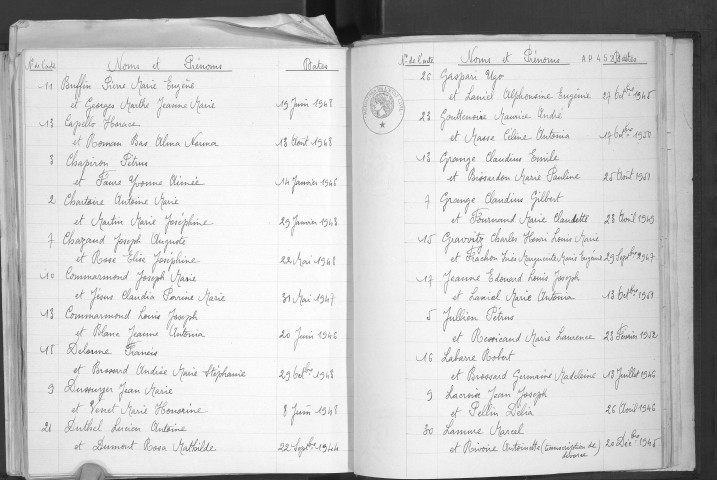 N° de l'acte Noms et Prénoms Dates
11 Buffin Pierre Marie Eugène
et Georges Marthe Jeanne Marie 19 Juin 1948
13 Capello Horace
et Roman Bas Alma Norma 18 Août 1948
3 Chapiron Pétrus
et Faure Yvonne Aimée 14 Janvier 1946
2 Chartoire Antoine Marie
et Martin Marie Joséphine 29 Janvier 1948
7 Chazaud Joseph Auguste
et Rose Elise Joséphine 22 Mai 1948
10 Commarmond Joseph Marie
et Jéous Claudia Marie 31 Mai 1947
13 Commarmond Louis Joseph
et Blanc Jeanne Antonia 20 Juin 1946
18 Delorme Francis
et Brossard Andrée Marie Stéphanie 29 Octbre 1948
9 Jean Marie
et Venet Marie Honorine 8 Juin 1948
21 Duthel Lucien Antoine
et Dumont Rosa Mathilde 22 Septbre 1944
N° de l'acte Noms et Prénoms AP 452 Dates
26 Gaspari Ugo
et Laniel Alphonsine Eugénie 27 Octbre 1945
23 Gouttenoire Maurice André
et Masse Céline Antonia 17 Octbre 1950
13 Grange Claudius Emile
et Bissardon Marie Pauline 25 Août 1951
7 Grange Claudius Gilbert
et Fournand Marie Claudette 23 Avril 1949
15 Charles Henri Louis Marie
et Frachon Inès Marguerite Marie Eugénie 29 Septbre 1947
17 Jeanne Edouard Louis Joseph
et Laniel Marie Antonia 13 Octbre 1951
5 Jullien Pétrus
et Ressicaud Marie Laurence 23 Février 1952
16 Labarre Robert
et Brossard Germaine Madeleine 13 Juillet 1946
9 Lacroix Jean Joseph
et Pellin Délia 26 Avril 1946
30 Lamure Marcel
et Rivoire Antoinette (transcription de
divorce 20 Décbre 1945